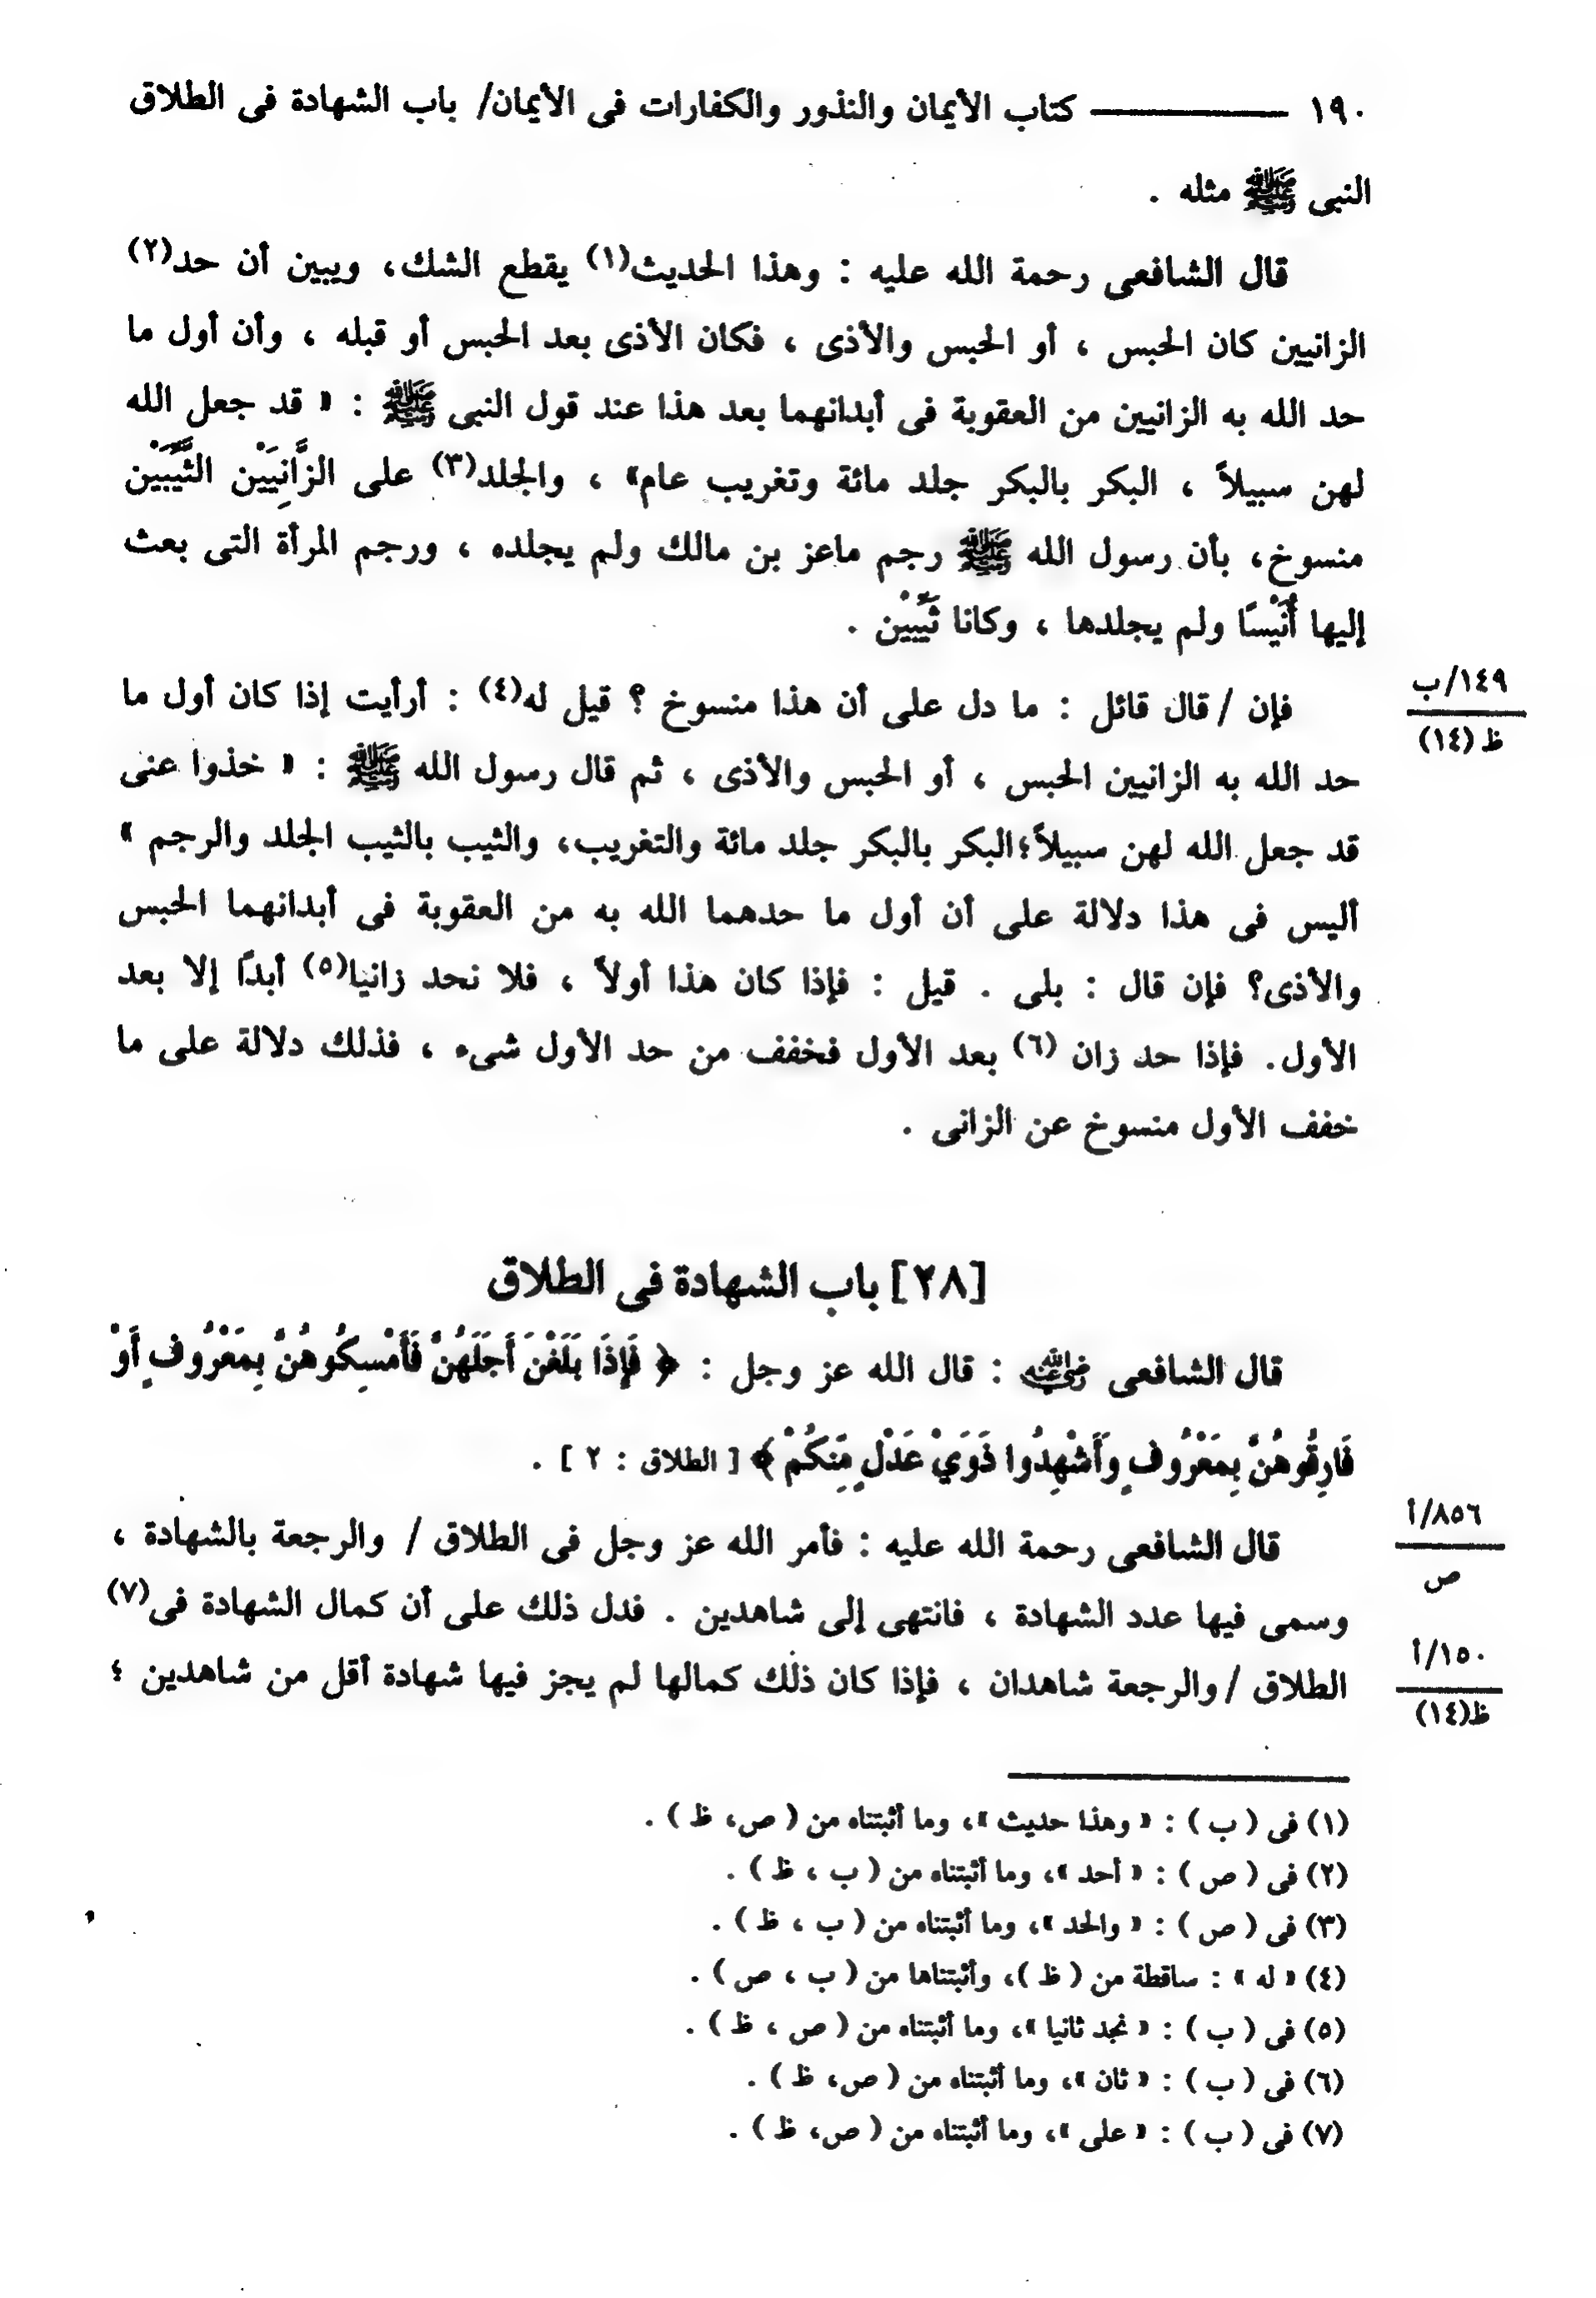 ١٩٠ ـــــــــ كتاب الأيمان والنذور والكفارات فى الأيمان/ باب الشهادة فى الطلاق
النبى ﷺ مثله .
قال الشافعى رحمة الله عليه : وهذا الحديث(١) يقطع الشك، ويبين أن حد(٢)
الزانيين كان الحبس ، أو الحبس والأذى ، فكان الأذى بعد الحبس أو قبله ، وأن أول ما
حد الله به الزانيين من العقوبة فى أبدانهما بعد هذا عند قول النبى ﷺ : « قد جعل الله
لهن سبيلاً ، البكر بالبكر جلد مائة وتغريب عام» ، والجلد(٣) على الزَّانِيَيْن الثَّيِّبَيْن
منسوخ، بأن رسول الله ﷺ رجم ماعز بن مالك ولم يجلده ، ورجم المرأة التى بعث
إليها أُنَيْسًا ولم يجلدها ، وكانا ثَيِّبَيْن .
١٤٩/ب
ظ (١٤)
فإن / قال قائل : ما دل على أن هذا منسوخ ؟ قيل له(٤) : أرأيت إذا كان أول ما
حد الله به الزانيين الحبس ، أو الحبس والأذى ، ثم قال رسول الله ﷺ : « خذوا عنى
قد جعل الله لهن سبيلاً؛البكر بالبكر جلد مائة والتغريب، والثيب بالثيب الجلد والرجم »
أليس فى هذا دلالة على أن أول ما حدهما الله به من العقوبة فى أبدانهما الحبس
والأذى؟ فإن قال : بلى . قيل : فإذا كان هذا أولاً ، فلا نحد زانيا(٥) أبدًا إلا بعد
الأول. فإذا حد زان (٦) بعد الأول فخفف من حد الأول شىء ، فذلك دلالة على ما
خفف الأول منسوخ عن الزانى .
[٢٨] باب الشهادة فى الطلاق
قال الشافعى رضي الله عنه : قال الله عز وجل : ﴿ فَإِذَا بَلَغْنَ أَجَلَهُنَّ فَأَمْسِكُوهُنَّ بِمَعْرُوفٍ أَوْ
فَارِقُوهُنَّ بِمَعْرُوفٍ وَأَشْهِدُوا ذَوَيْ عَدْلٍ مِّنكُمْ ﴾ [ الطلاق : ٢ ] .
٨٥٦/أ
ص
قال الشافعى رحمة الله عليه : فأمر الله عز وجل فى الطلاق / والرجعة بالشهادة ،
وسمى فيها عدد الشهادة ، فانتهى إلى شاهدين . فدل ذلك على أن كمال الشهادة فى(٧)
١٥٠/أ
ظ(١٤)
الطلاق / والرجعة شاهدان ، فإذا كان ذلك كمالها لم يجز فيها شهادة أقل من شاهدين ؛
(١) فى ( ب ) : « وهذا حديث »، وما أثبتناه من ( ص، ظ ) .
(٢) فى ( ص ) : « أحد »، وما أثبتناه من ( ب ، ظ ) .
(٣) فى ( ص ) : « والحد »، وما أثبتناه من ( ب ، ظ ) .
(٤) « له » : ساقطة من ( ظ )، وأثبتناها من ( ب ، ص ) .
(٥) فى ( ب ) : « نجد ثانيا »، وما أثبتناه من ( ص ، ظ ) .
(٦) فى ( ب ) : « ثان »، وما أثبتناه من ( ص، ظ ) .
(٧) فى ( ب ) : « على »، وما أثبتناه من ( ص، ظ ) .